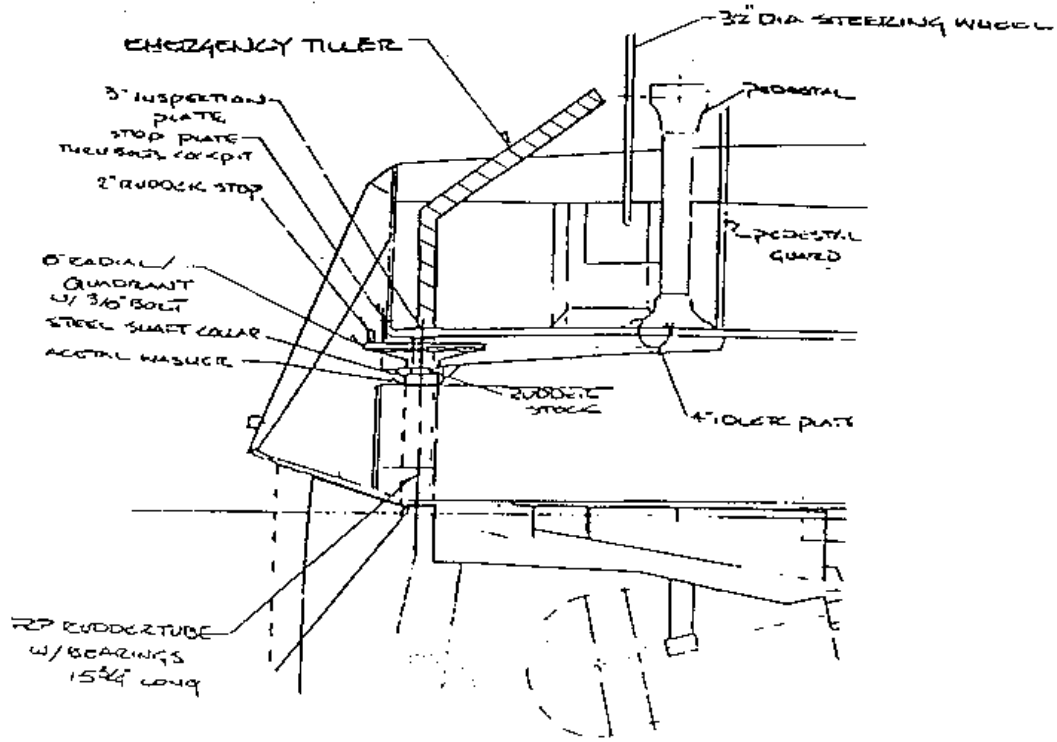 32" DIA STEERING WHEEL
EMERGENCY TILLER
PEDESTAL
3" INSPECTION
PLATE
STOP PLATE
THRU BOLTS COCKPIT
2" RUDDER STOP
PEDESTAL
GUARD
RADIAL/
QUADRANT
W/ 3/8" BOLT
STEEL SHAFT COLLAR
ACETAL WASHER
RUDDER
STOCK
4" IDLER PLATE
FRP RUDDERTUBE
W/BEARINGS
15 3/4" LONG